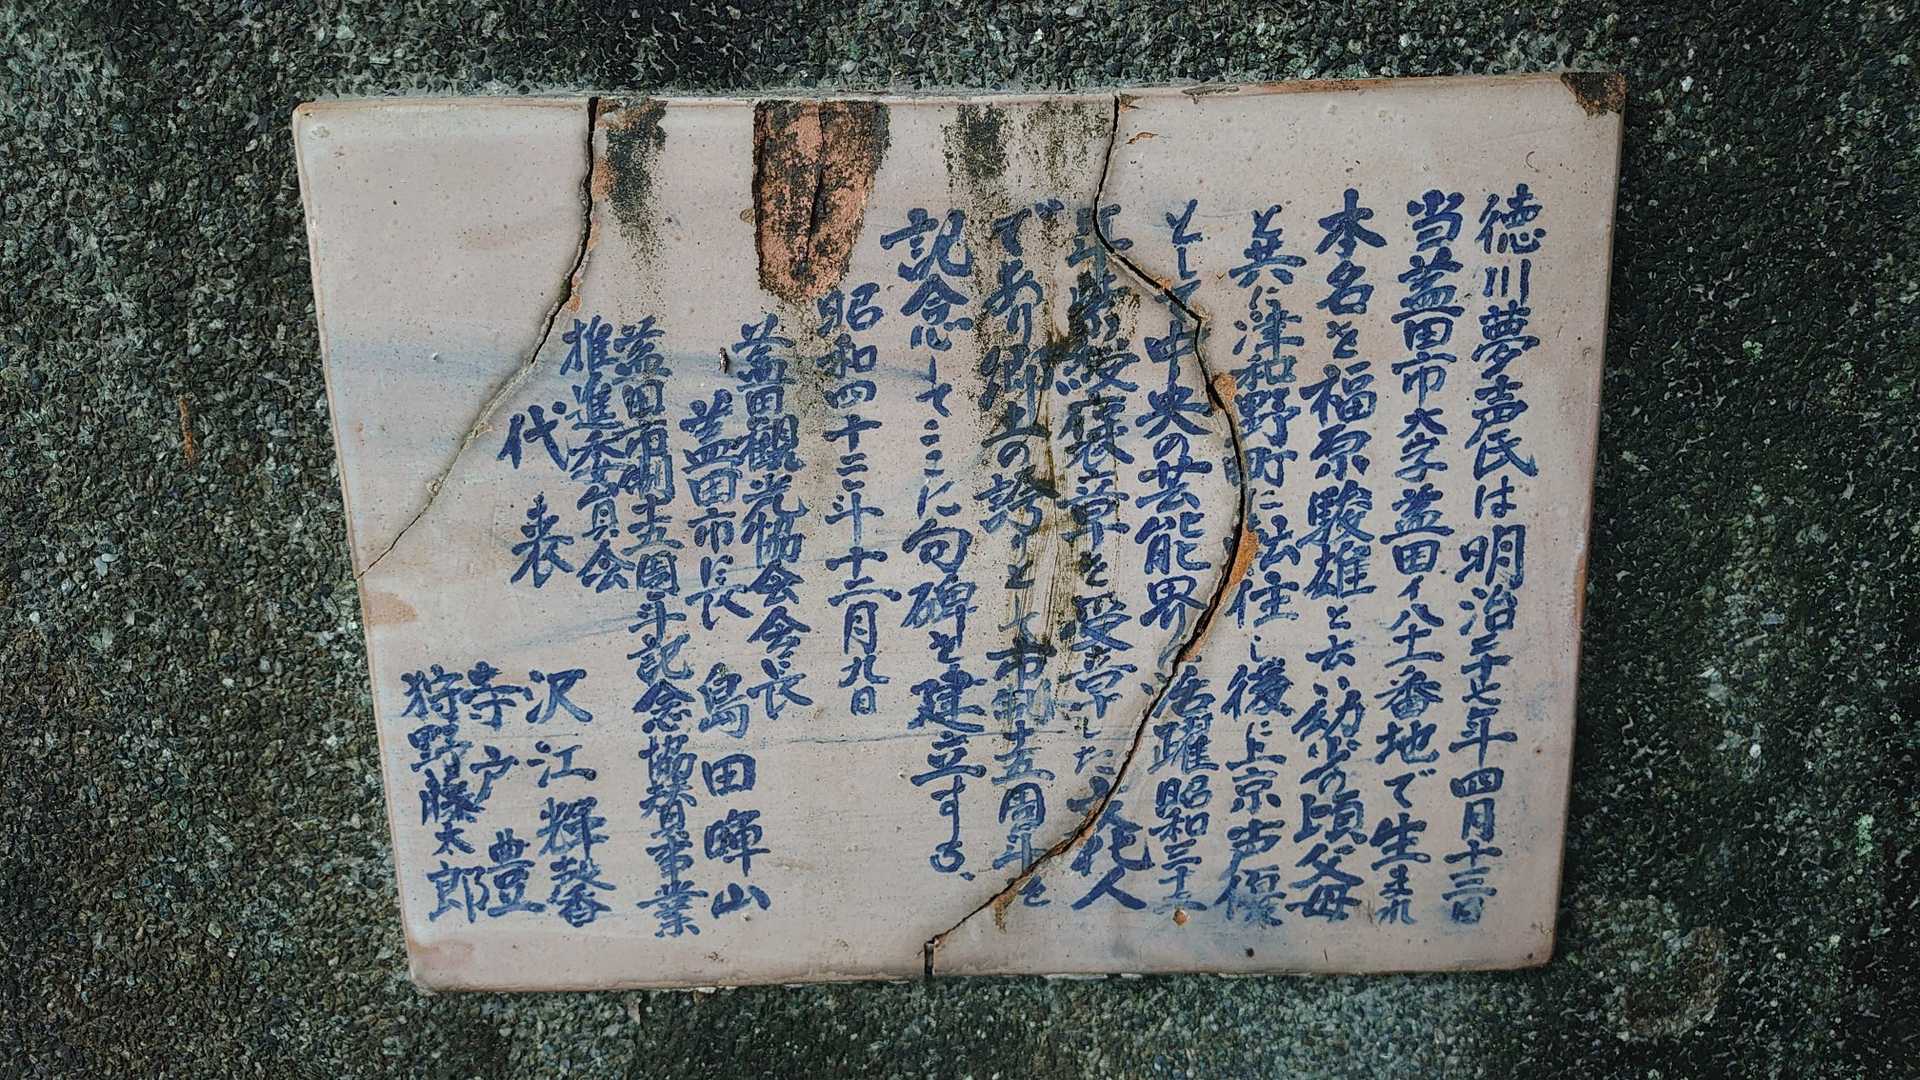 徳川夢声氏は明治二十七年四月十三日
当益田市大字益田イ八十一番地で生まれ
本名を福原駿雄と云い幼少の頃父母
と共に津和野町に 住し後に上京声優
として中央の芸能界に活躍昭和三十二
年紫綬褒章を受章した文化人
であり郷土の誇りと 市制十五周年を
記念してここに句碑を建立する、
昭和四十二年十二月九日
益田観光協会会長
益田市長 島田暉山
益田市制十五周年記念協賛事業
推進委員会
代表 沢江輝馨
寺戸 豊
狩野藤太郎